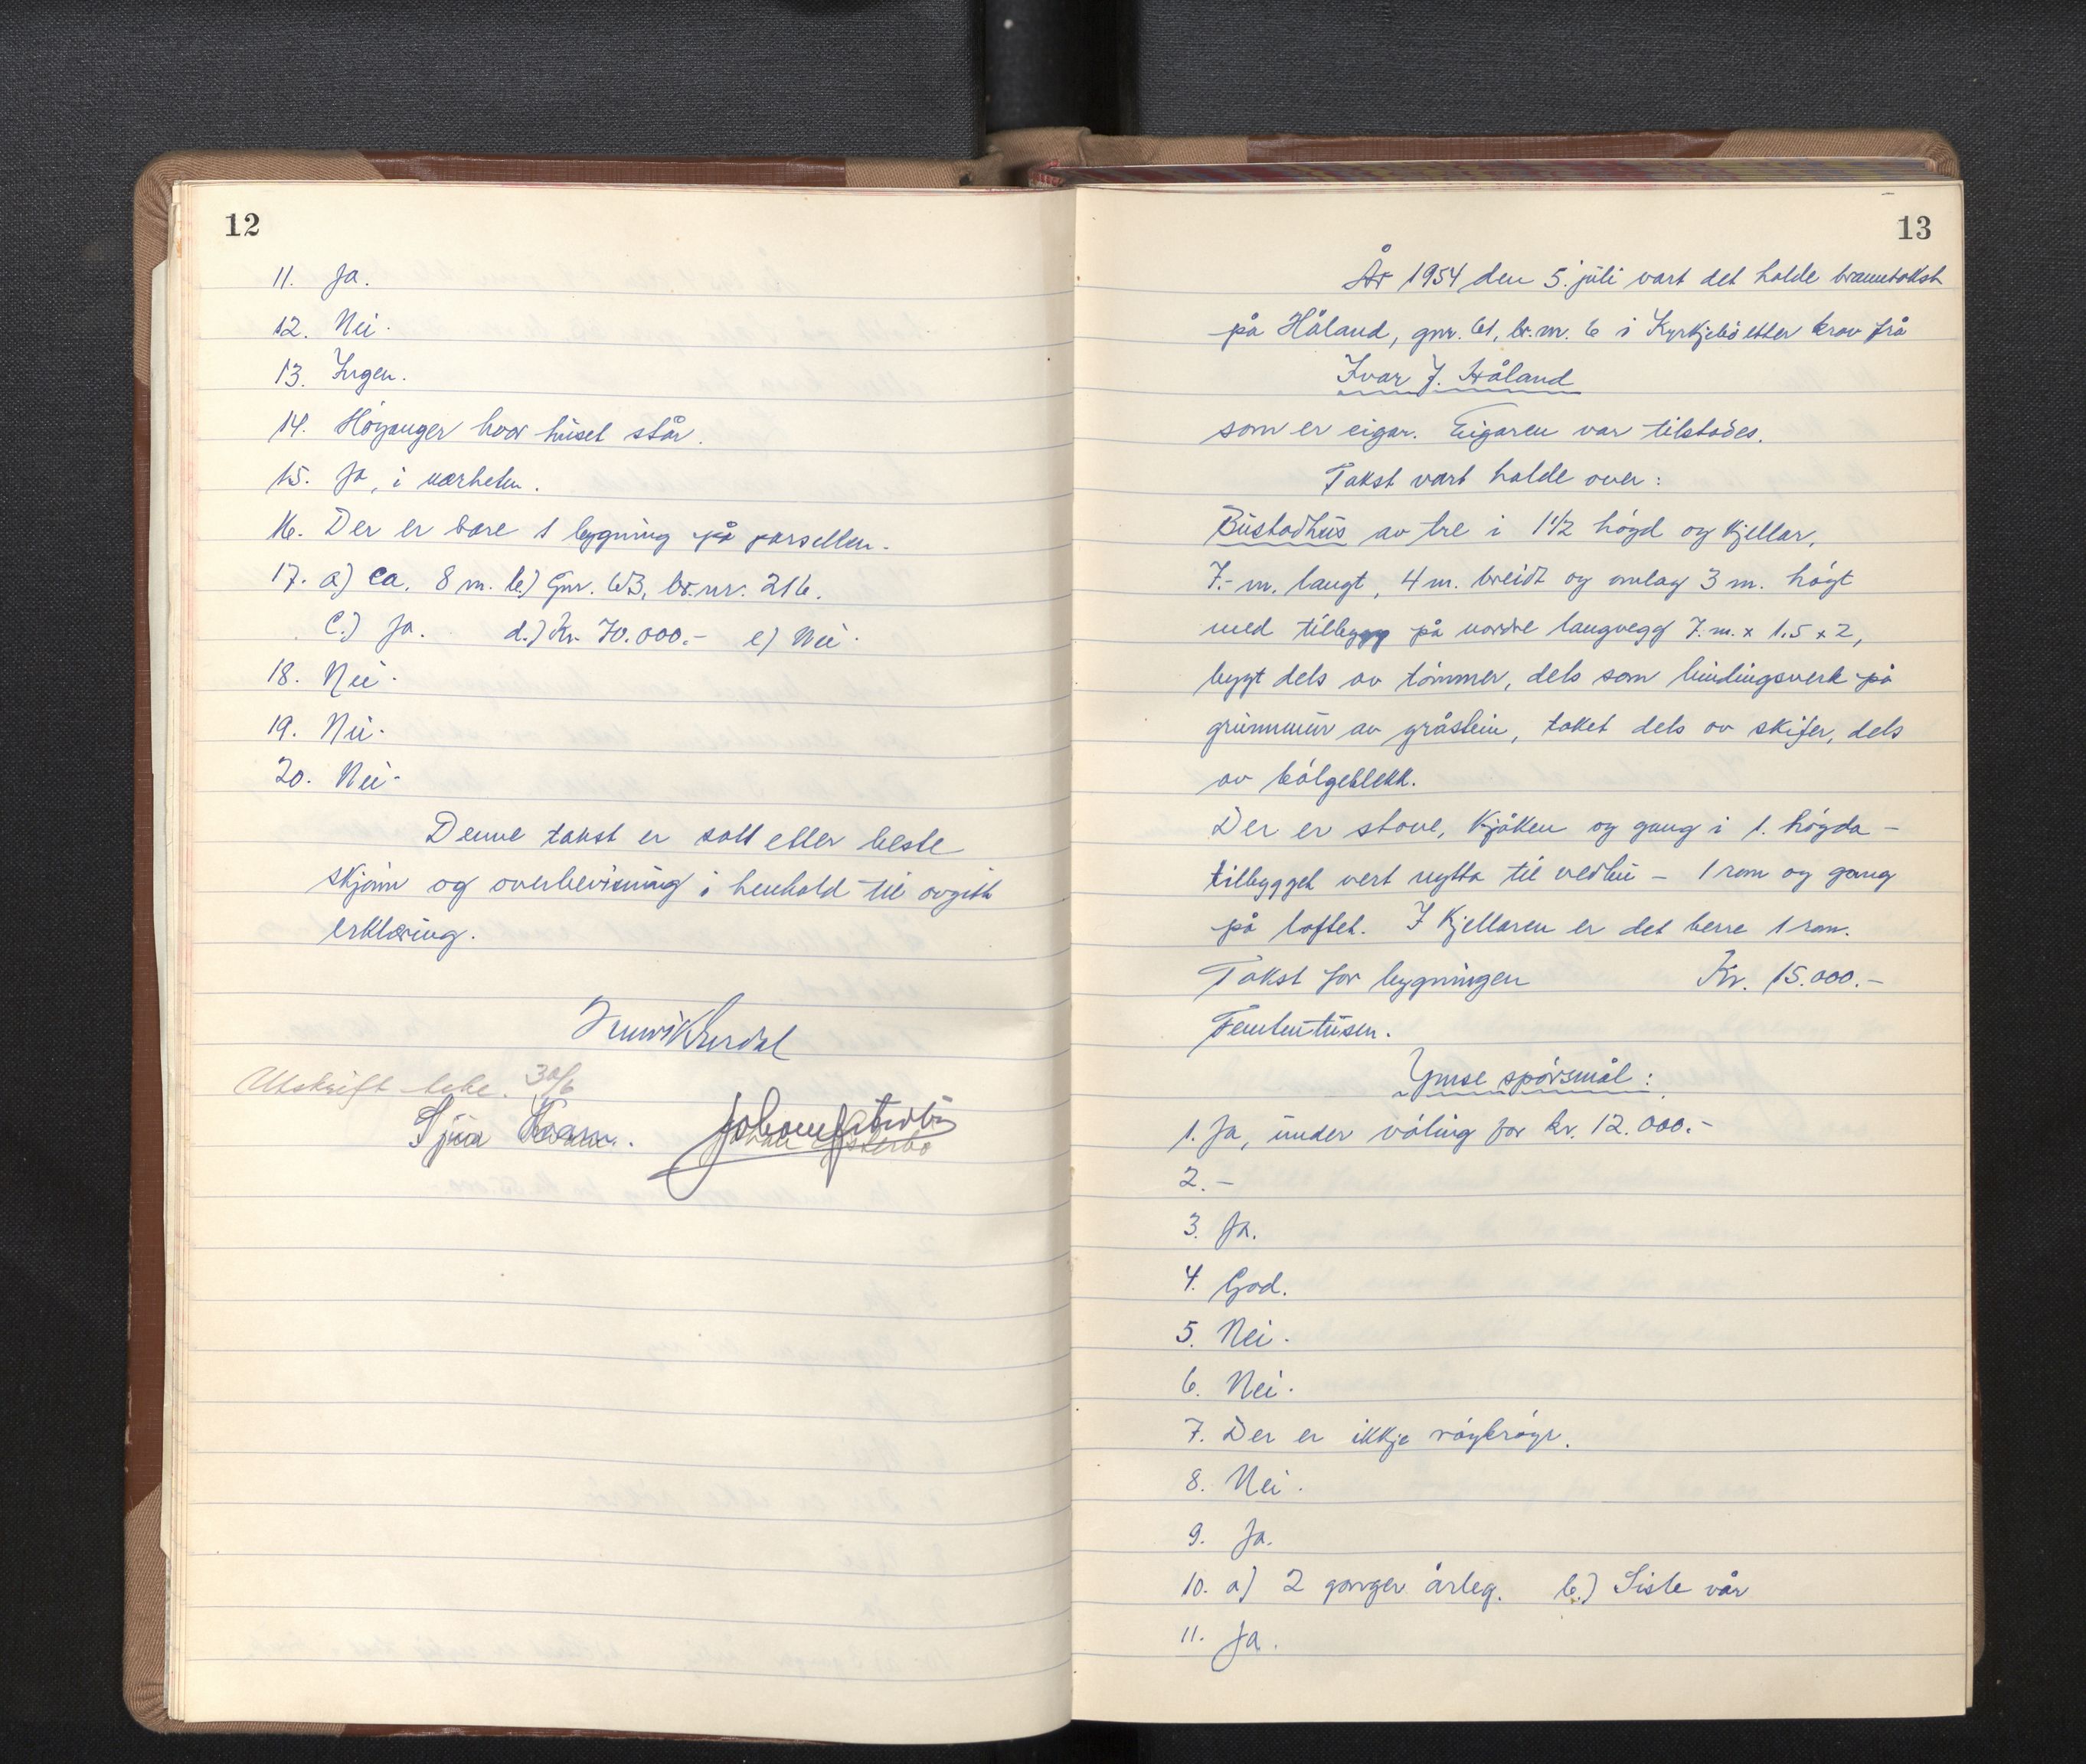 12
11. Ja.
12. Nei.
13. Ingen.
14. Høyanger hvor huset står.
15. Ja, i nærheten.
16. Der er bare 1 bygning på parsellen.
17. a) Ca. 8 m. b.) Gnr. 63, br.nr. 216.
c.) Ja. d.) Kr. 70.000.- e) Nei.
18. Nei.
19. Nei.
20. Nei.
Denne takst er satt etter beste
skjønn og overbevisning i henhold til avgitt
erklæring.
Utskrift 30/6
13
År 1954 den 5. juli vart det halde branntakst
på Håland, gnr. 61, br.nr. 6 i Kyrkjebø etter krav frå
Ivar J. Håland
som er eigar. Eigaren var tilstades.
Takst vart halde over:
Bustadhus av tre i 1 1/2 høgd og kjellar,
7.- m. langt, 4 m. breidt og omlag 3 m. høgt
med tilbygg på nordre langvegg 7. m. x 1.5 x 2,
bygt dels av tømmer, dels som bindingsverk på
grunnmur av gråstein, taket dels av skifer, dels
av bølgeblekk.
Der er stove, kjøken og gang i 1. høgda -
tilbygget vert nytta til vedbu - 1 rom og gang
på loftet. I kjellaren er det berre 1 rom.
Takst for bygningen Kr. 15.000.-
Femtentusen.
Ymse spørsmål:
1. Ja, under våling for kr. 12.000.-
2. -
3. Ja.
4. God.
5. Nei.
6. Nei.
7. Der er ikkje røykrøyr.
8. Nei.
9. Ja.
10. a) 2 ganger årleg. b.) Siste vår
11. Ja.